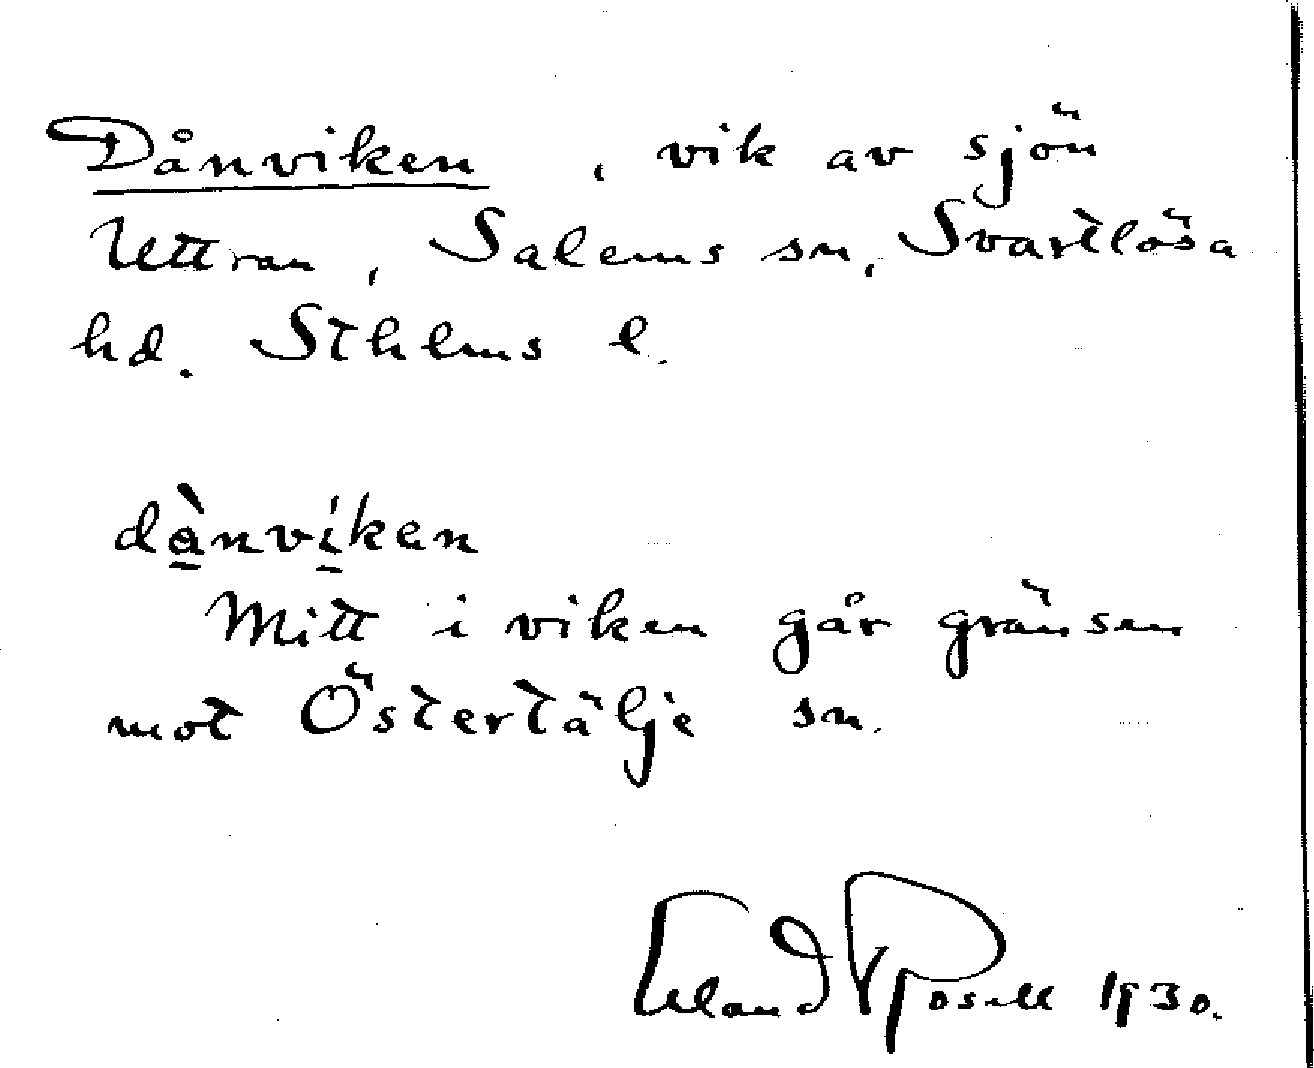 Dånviken, vik av sjön
Uttran, Salems sn, Svartlösa
hd. Sthlms l.
dànvíkan
Mitt i viken går gränsen
mot Östertälje sn.
Erland Rosell 1930.